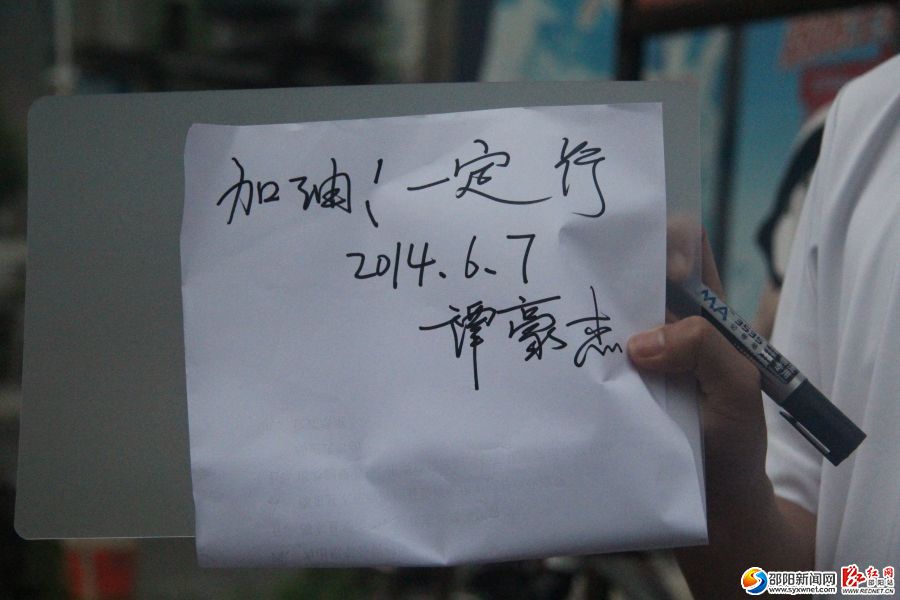 加油！一定行
2014.6.7
谭豪杰
邵阳新闻网
www.syxwnet.com
红网
邵阳站
WWW.REDNET.CN